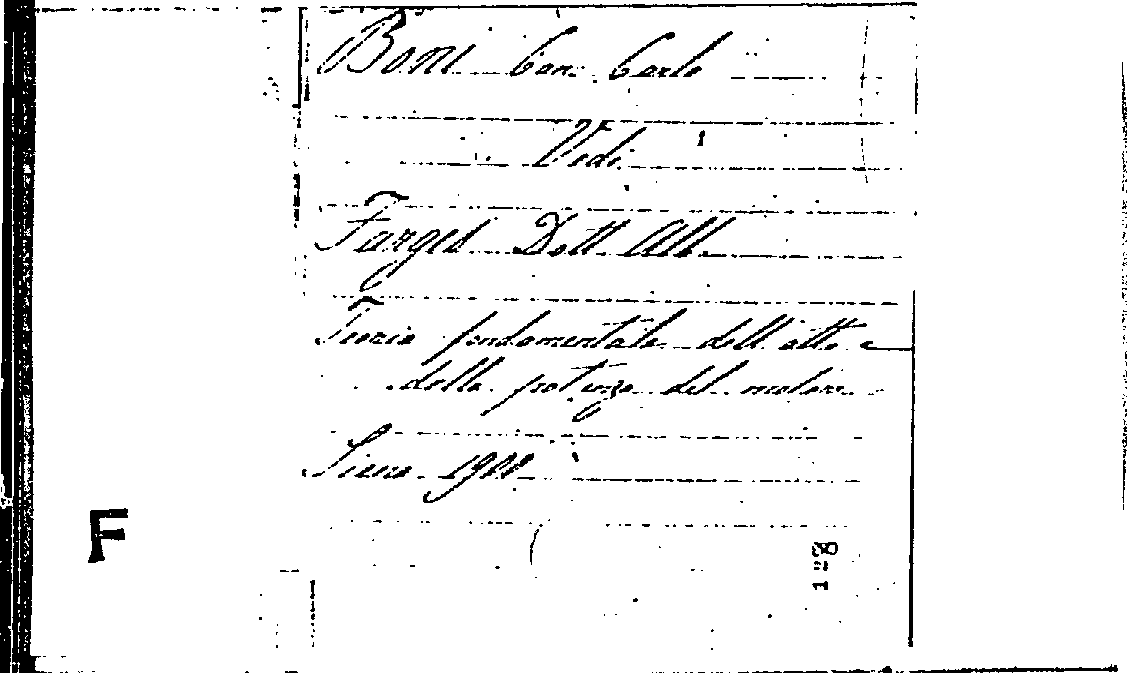 Boni Can. Carlo
Vedi
Farges Dott. Alb.
Teoria fondamentale dell'atto e
della potenza del motore
Siena 1900
F